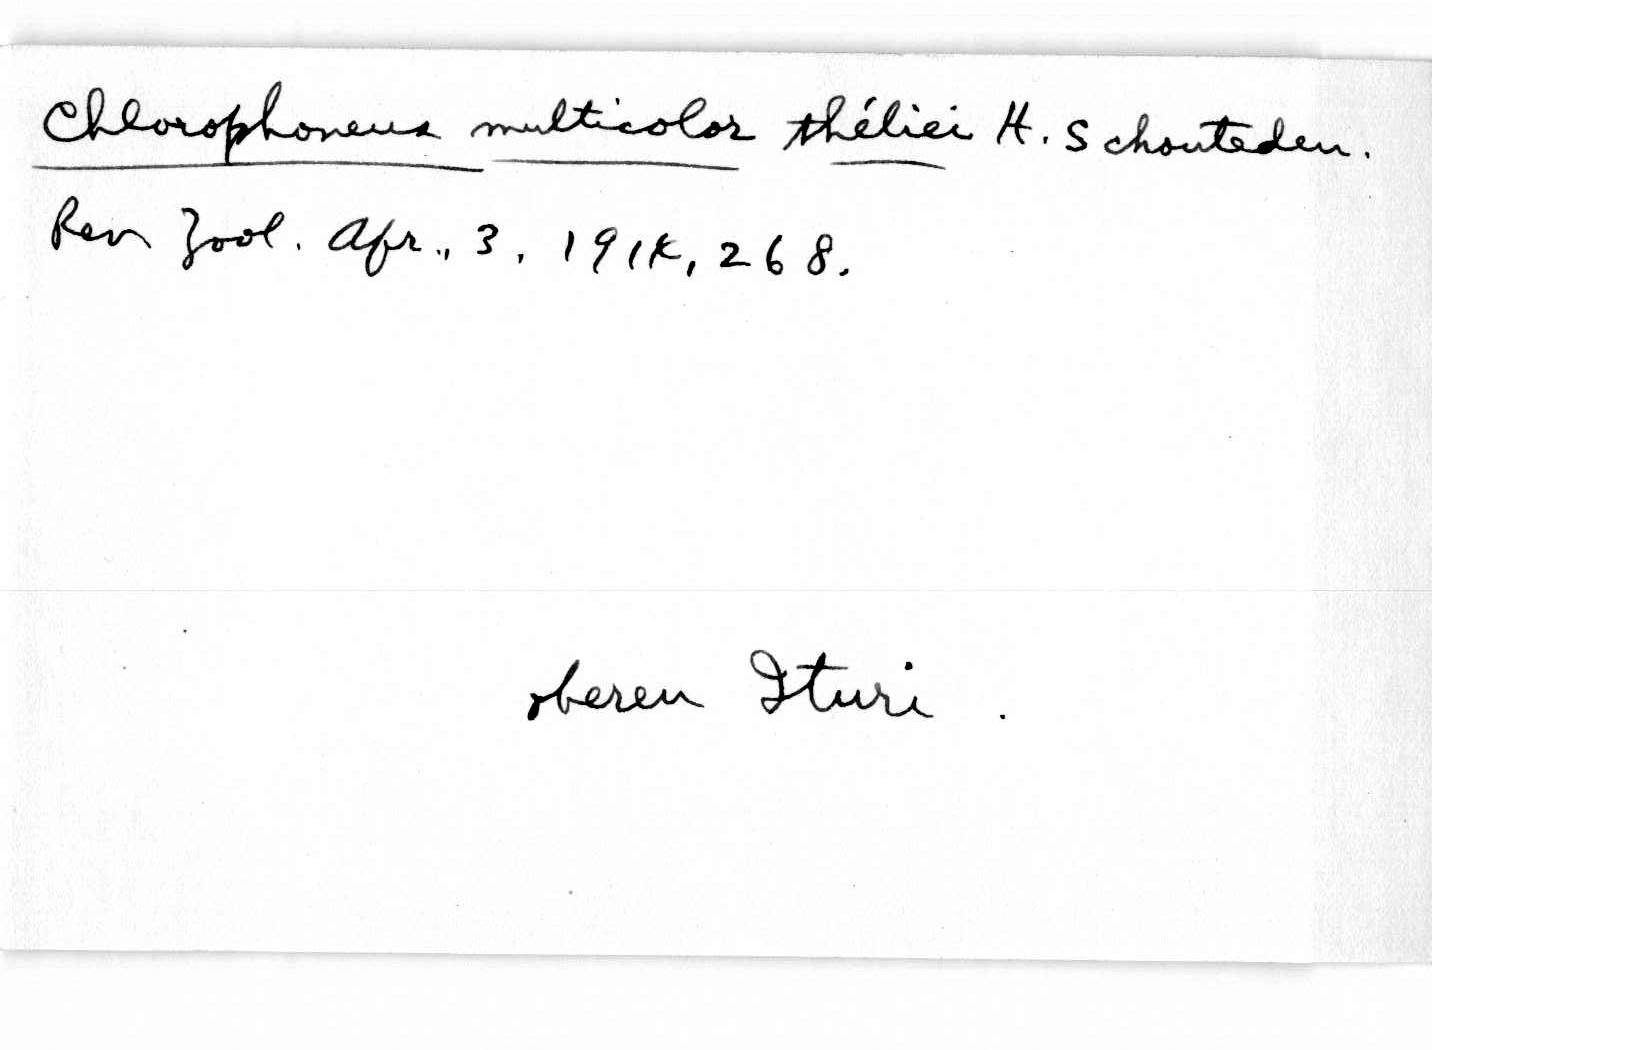 Chlorophoneus multicolor théliei H. Schouteden.
Rev Zool. Afr., 3, 1914, 268.
oberen Ituri.